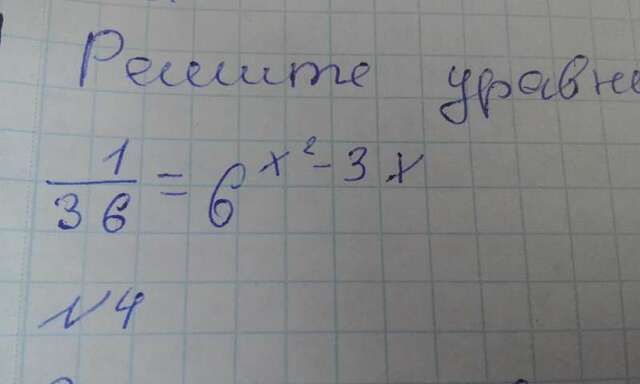 Решите уравне
1/36 = 6^{x^2-3x}
№4